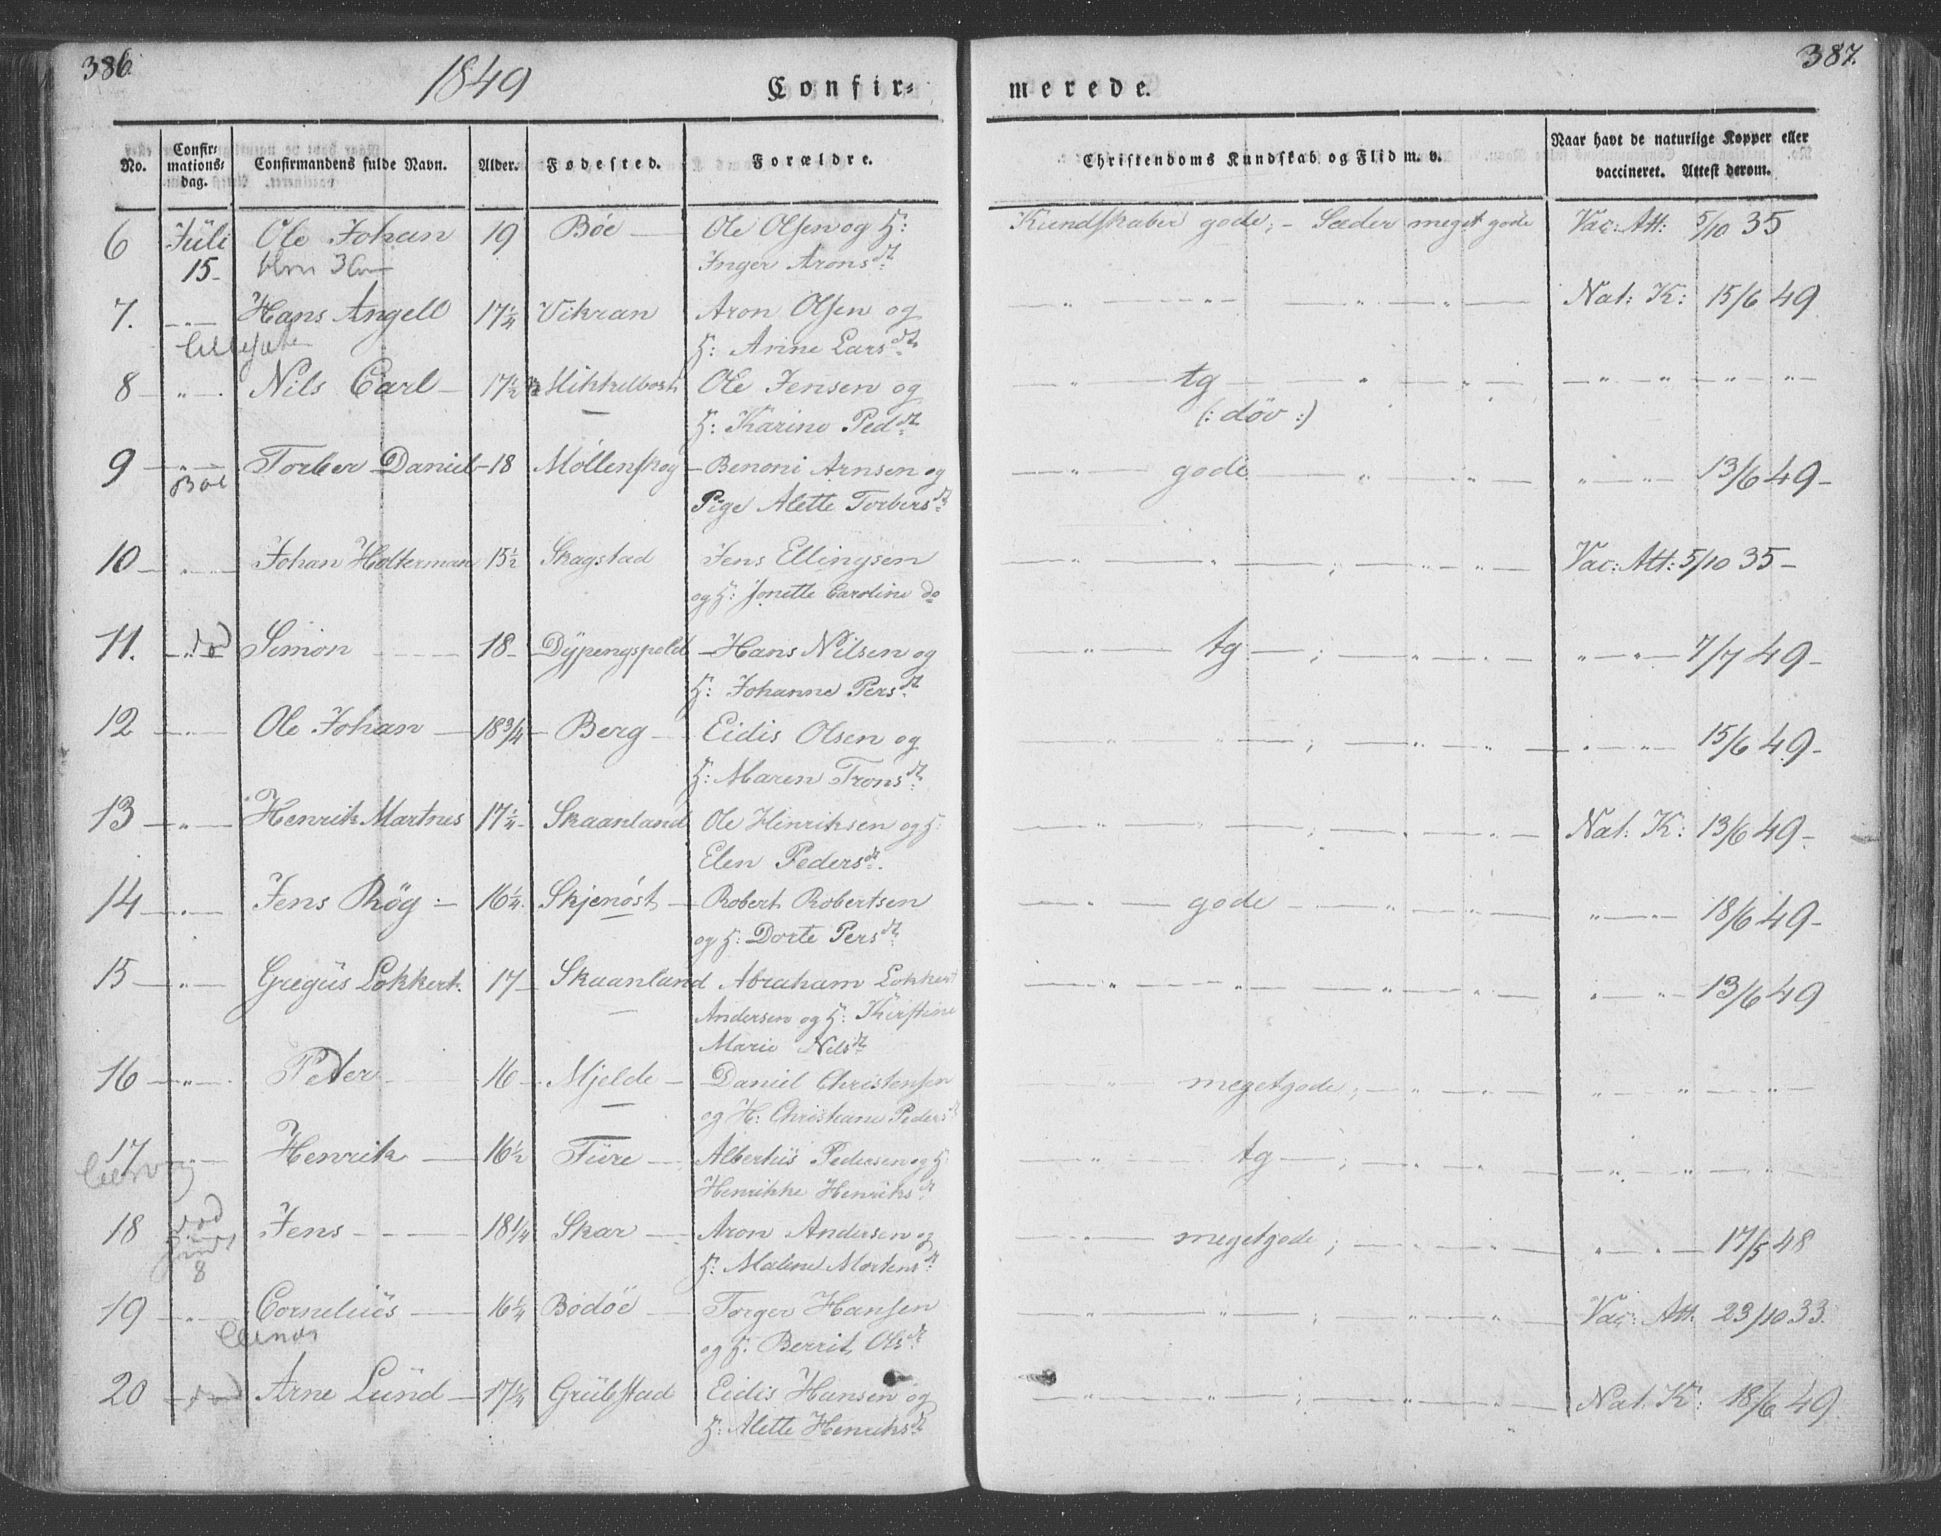 386.
1849
Confir=
No.
Confir=
mations=
dag.
Confirmandens fulde Navn.
Alder.
Fødested.
Forældre.
6 Juli Ole Johan 19 Bøe — Ole Olsen og H:
15- Inger Arons dt.
7. —"— Hans Angell 17¼ Vikran Aron Olsen og
H: Anne Lars dt.
8 —"— Nils Carl — 17½ Mikkelbost Ole Jensen og
H: Karine Ped dt.
9 —"— Torber Daniel - 18 Møllenskog — Benoni Arnsen og
Bøe Pige Alette Torbers dt.
10 —"— Johan Holterman 15½ Skagstad Jens Ellingsen
og H: Jonette Caroline do
11. —"— død Simon — 18 - Dypengspold — Hans Nilsen og
H: Johanne Pers dt.
12 —"— Ole Johan — 18¾ — Berg — Eidis Olsen og
H: Maren Trons dt.
13 —"— Henrik Martnus 17¼ - Skaanland Ole Hinriksen og H:
Elen Peders dt.
14 —"— Jens Røg :— 16¼ - Skjenøst — Robert Robertsen
og H: Dorte Pers dt.
15 —"— Gregus Lokkert. 17 — Skaanland Abraham Lokkert
Andersen og H: Kirstine
Marie Nils dt.
16 —"— Peter — 16 — Mjelde — Daniel Christensen
og H: Christiane Peders dt.
17 —"— Henrik — 16½ Fure — Albertus Pedersen og H:
Henrikke Henriks dt.
18 død Jens — 18¼ — Skar — Aron Andersen og
8 H: Malene Mortens dt.
19 —"— Cornelius — 16¼ Bodøe — Torger Hansen
og H: Berrit Ols dt.
20 — død Arne Lund — 17¼ Grubstad Eidis Hansen og
H: Alette Henriks dt.
387.
merede.
Christendoms Kundskab og Flid m. v.
Naar havt de naturlige Kopper eller
vaccineret. Attest derom.
Kundskaber gode; - Sæder meget gode Vac: Att: 5/10 35
—"— " — " — " — Nat: K: 15/6 49
—"— tg — " — " — " — " — " —
(: døv :)
—"— gode — " — " — " — " — 13/6 49 -
—"— " — ; — " — " — Vac: Att: 5/10 35 -
—"— tg — ; — " — " — " — " — 7/7 49 -
—"— " — ; — " — " — " — " — 15/6 49 -
—"— " — ; — " — " — Nat: K: 13/6 49 -
—"— gode — " — " — " — " — 18/6 49 -
—"— " — " — " — " — " — 13/6 49
" meget gode; — " — " — " — " — " —
—"— tg — ; — " — " — " — " — " —
—"— meget gode; — " — " — " — " — 17/5 48
—"— " — ; — " — " — Vac: Att. 23/10 33.
—"— " — ; — " — " — Nat. K: 18/6 49.